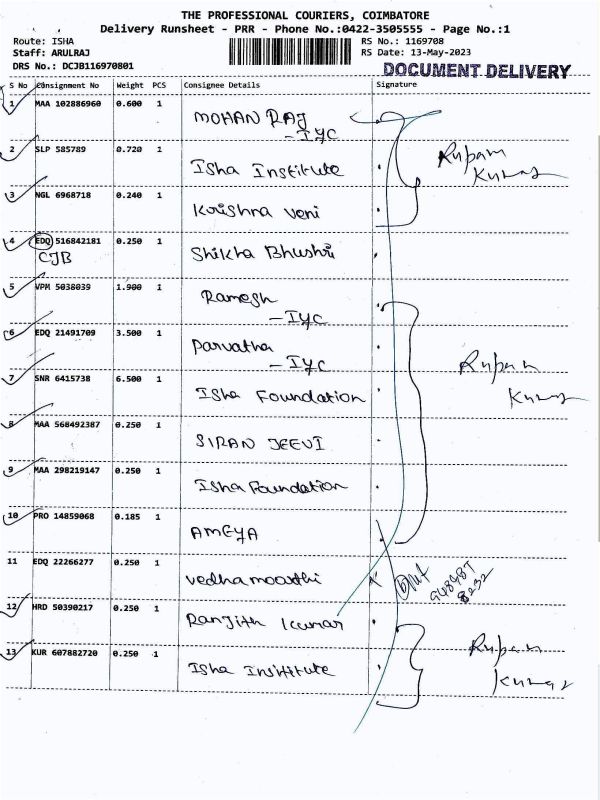 THE PROFESSIONAL COURIERS, COIMBATORE
Delivery Runsheet - PRR - Phone No.:0422-3505555 - Page No.:1
Route: ISHA
Staff: ARULRAJ
DRS No.: DCJB116970801
RS No.: 1169708
RS Date: 13-May-2023
DOCUMENT DELIVERY
S No Consignment No Weight PCS Consignee Details Signature
1 MAA 102886960 0.600 1 MOHAN RAJ
- IYC
2 SLP 585789 0.720 1 Isha Institute
Rupam
Kumar
3 NGL 6968718 0.240 1 Krishna veni
4 EDQ 516842181 0.250 1 Shikha Bhushri
CJB
5 VPM 5038039 1.900 1 Ramesh
- IYC
6 EDQ 21491709 3.500 1 Parvatha
- IYC
Rupam
Kumar
7 SNR 6415738 6.500 1 Isha Foundation
8 MAA 568492387 0.250 1 SIRAN JEEVI
9 MAA 298219147 0.250 1 Isha Foundation
10 PRO 14859068 0.185 1 AMEYA
11 EDQ 22266277 0.250 1 vedhamoorthi
8232
12 HRD 50390217 0.250 1 Ranjith kumar
13 KUR 607882720 0.250 1 Isha Insititute
Rupam
Kumar